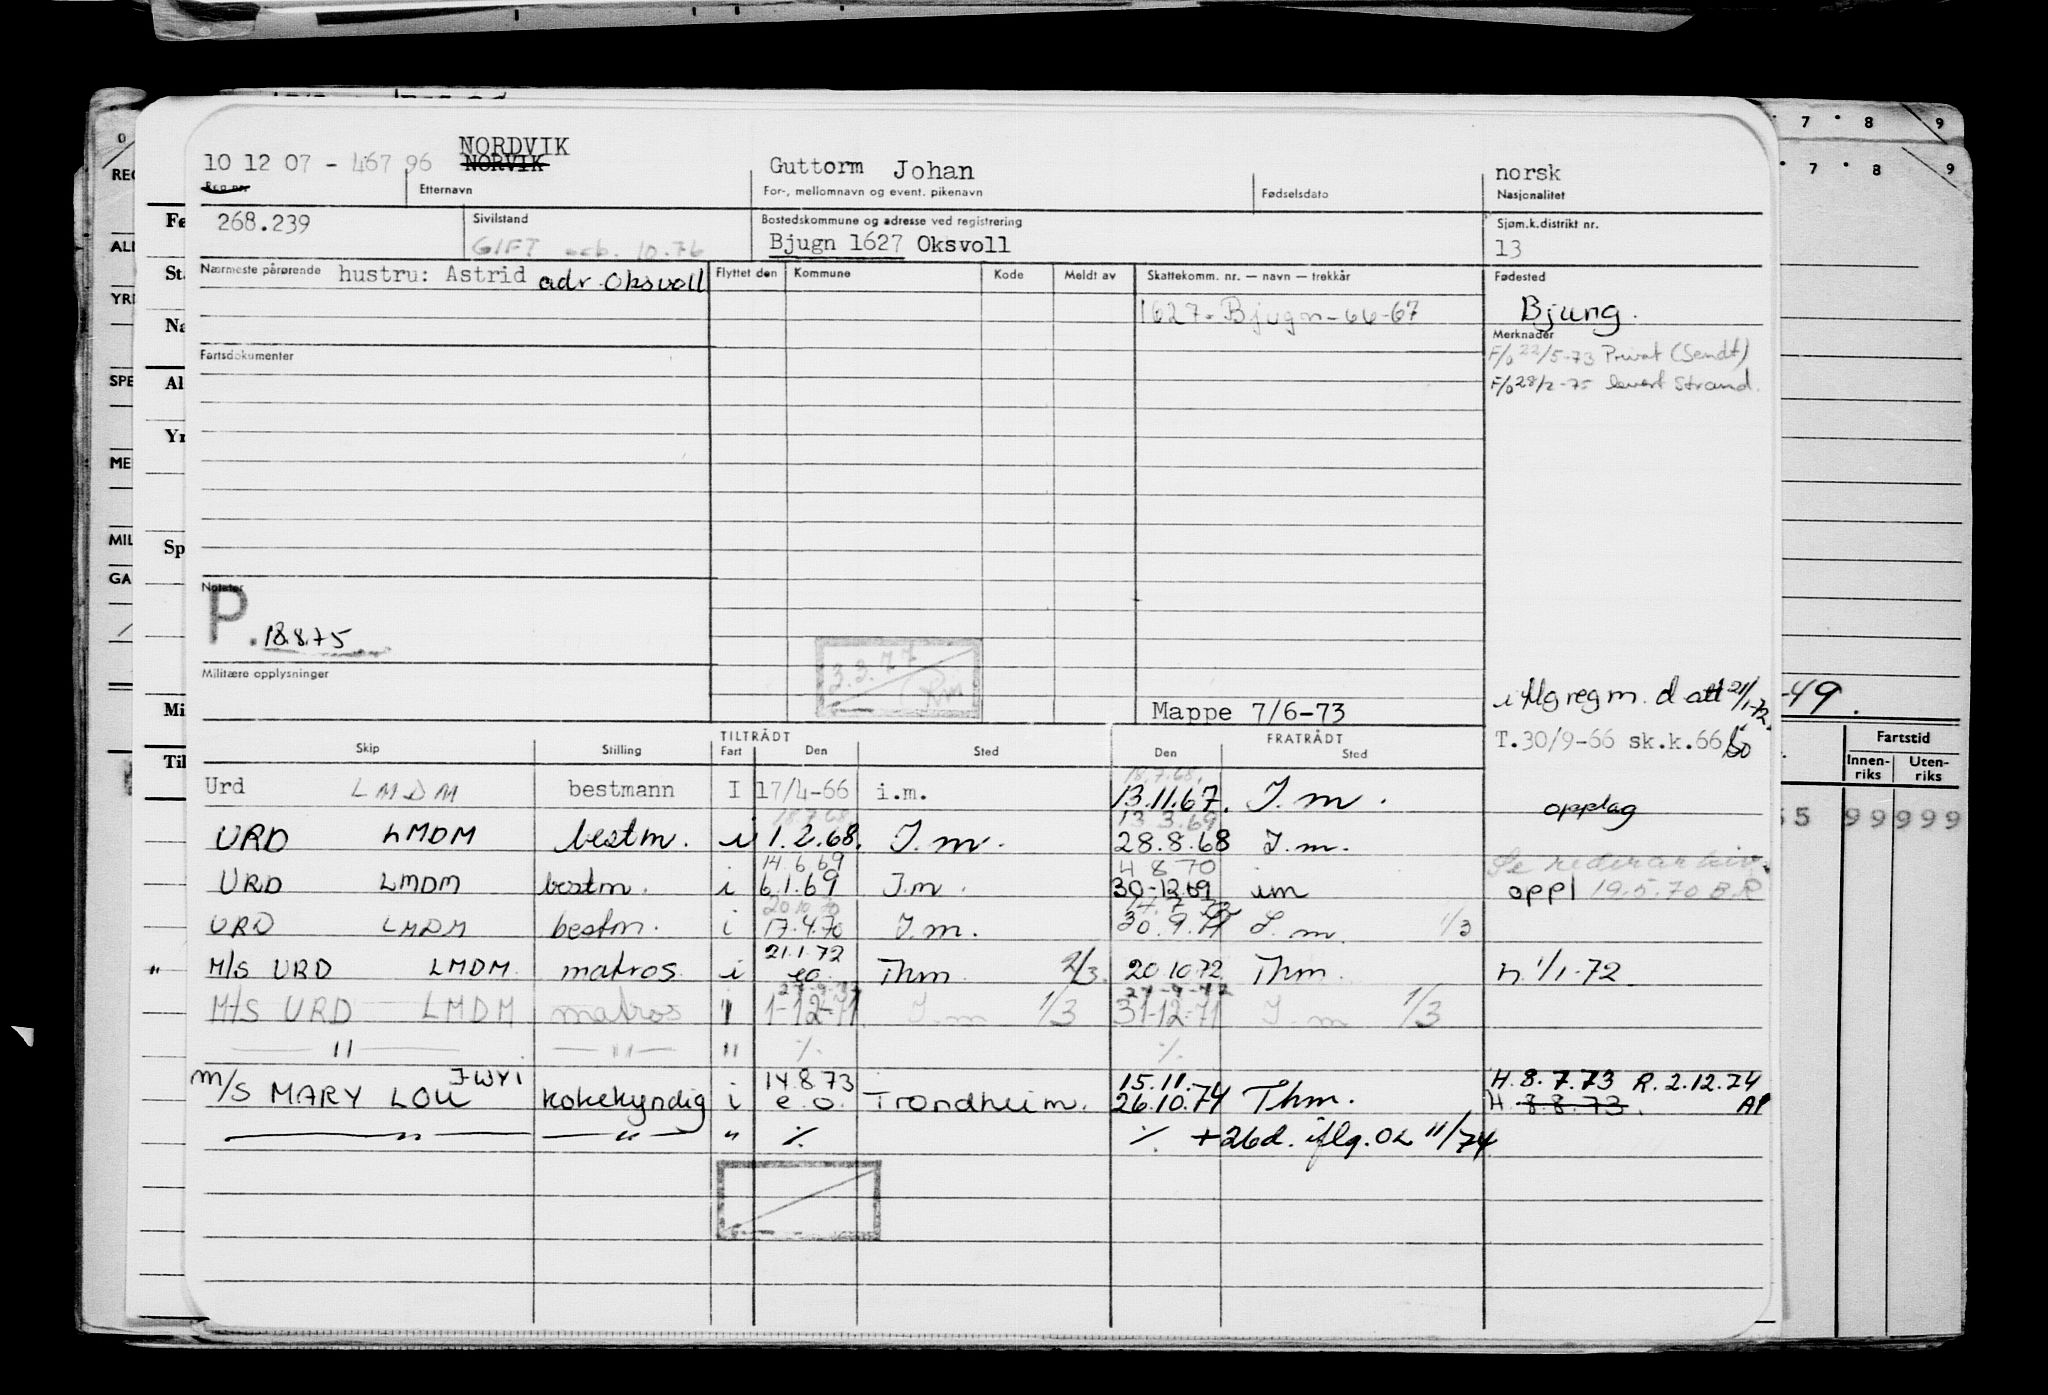 NORDVIK
10 12 07 - 467 96 NORVIK Guttorm Johan norsk
Reg.nr. Etternavn For-, mellomnavn og event. pikenavn Fødselsdato Nasjonalitet
268.239 Sivilstand Bostedskommune og adresse ved registrering Sjøm.k.distrikt nr.
GIFT 10.76 Bjugn 1627 Oksvoll 13
Nærmeste pårørende hustru: Astrid adr. Oksvoll Flyttet den Kommune Kode Meldt av Skattekomm. nr. — navn — trekkår Fødested
1627. Bjugn-66-67 Bjung.
Merknader
Fartsdokumenter F/b 22/5-73 Privat (Sendt)
F/b 28/2-75 levert Strand.
Notater
P. 18.8.75
Militære opplysninger
3.3.77
Mappe 7/6-73
i flg regm. d att 21/1-72.
T.30/9-66 sk.k.66
Skip Stilling TILTRÅDT Fart Den Sted FRATRÅDT Den Sted
18.7.68.
Urd LMDM bestmann I 17/4-66 i.m. 13.11.67. I.m. opplag
18.7.68. 13.3.69
URD LMDM bestm. i 1.2.68. I.m. 28.8.68 I.m.
14.6.69 4 8 70
URD LMDM bestm. i 6.1.69 I.m. 30-12.69 im oppl 19.5.70 B.R
20.10.70
URD LMDM bestm. i 17.4.70 I.m. 30.9.71 I.m. 1/3
21.1.72
" M/S URD LMDM matros i eo. Thm. 2/3. 20.10.72 Thm. n 1/1-72.
M/S URD LMDM matros " 1-12-71 I.m 1/3 31-12-71 I.m 1/3
— " — — " — " ./. ./.
M/S MARY LOU JWYI kokekyndig i 14.8.73 e.o. Trondheim. 15.11. 26.10.74 Thm. H. 8.7.73 R. 2.12.74
H. 8.8.73. AP
— " — — " — " ./. ./. +26d. iflg. OL 11/74
REG
Fe
ALM
Sta
YRK
Na
SPE
Al
Yr
MEI
MIL
Sp
GA
Mi
Til
7 8 9
7 8 9
-49.
Fartstid
Innen-riks Uten-riks
5 99 999